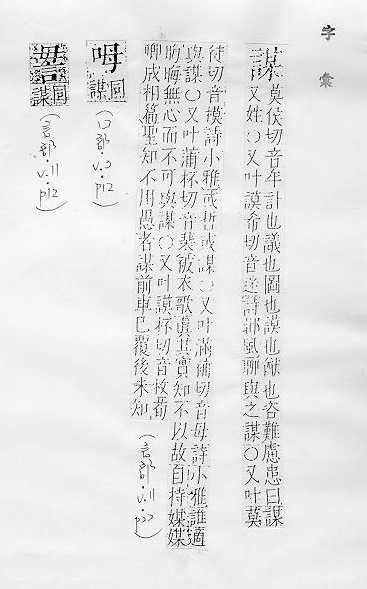 字彙
謀 莫侯切音牟計也議也圖也謨也猷也咨難慮患曰謀
又姓○又叶謨希切音迷詩邶風聊與之謀○又叶莫
徒切音模詩小雅或哲或謀○又叶滿補切音母詩小雅誰適
與謀○又叶蒲杯切音裴被衣歌眞其實知不以故自持媒媒
晦晦無心而不可與謀○又叶謨杯切音枚荀
卿成相篇聖知不用愚者謀前車已覆後未知
(言部．v.11．p22)
呣 同謀
(口部．v.3．p12)
同謀
(言部．v.11．p12)